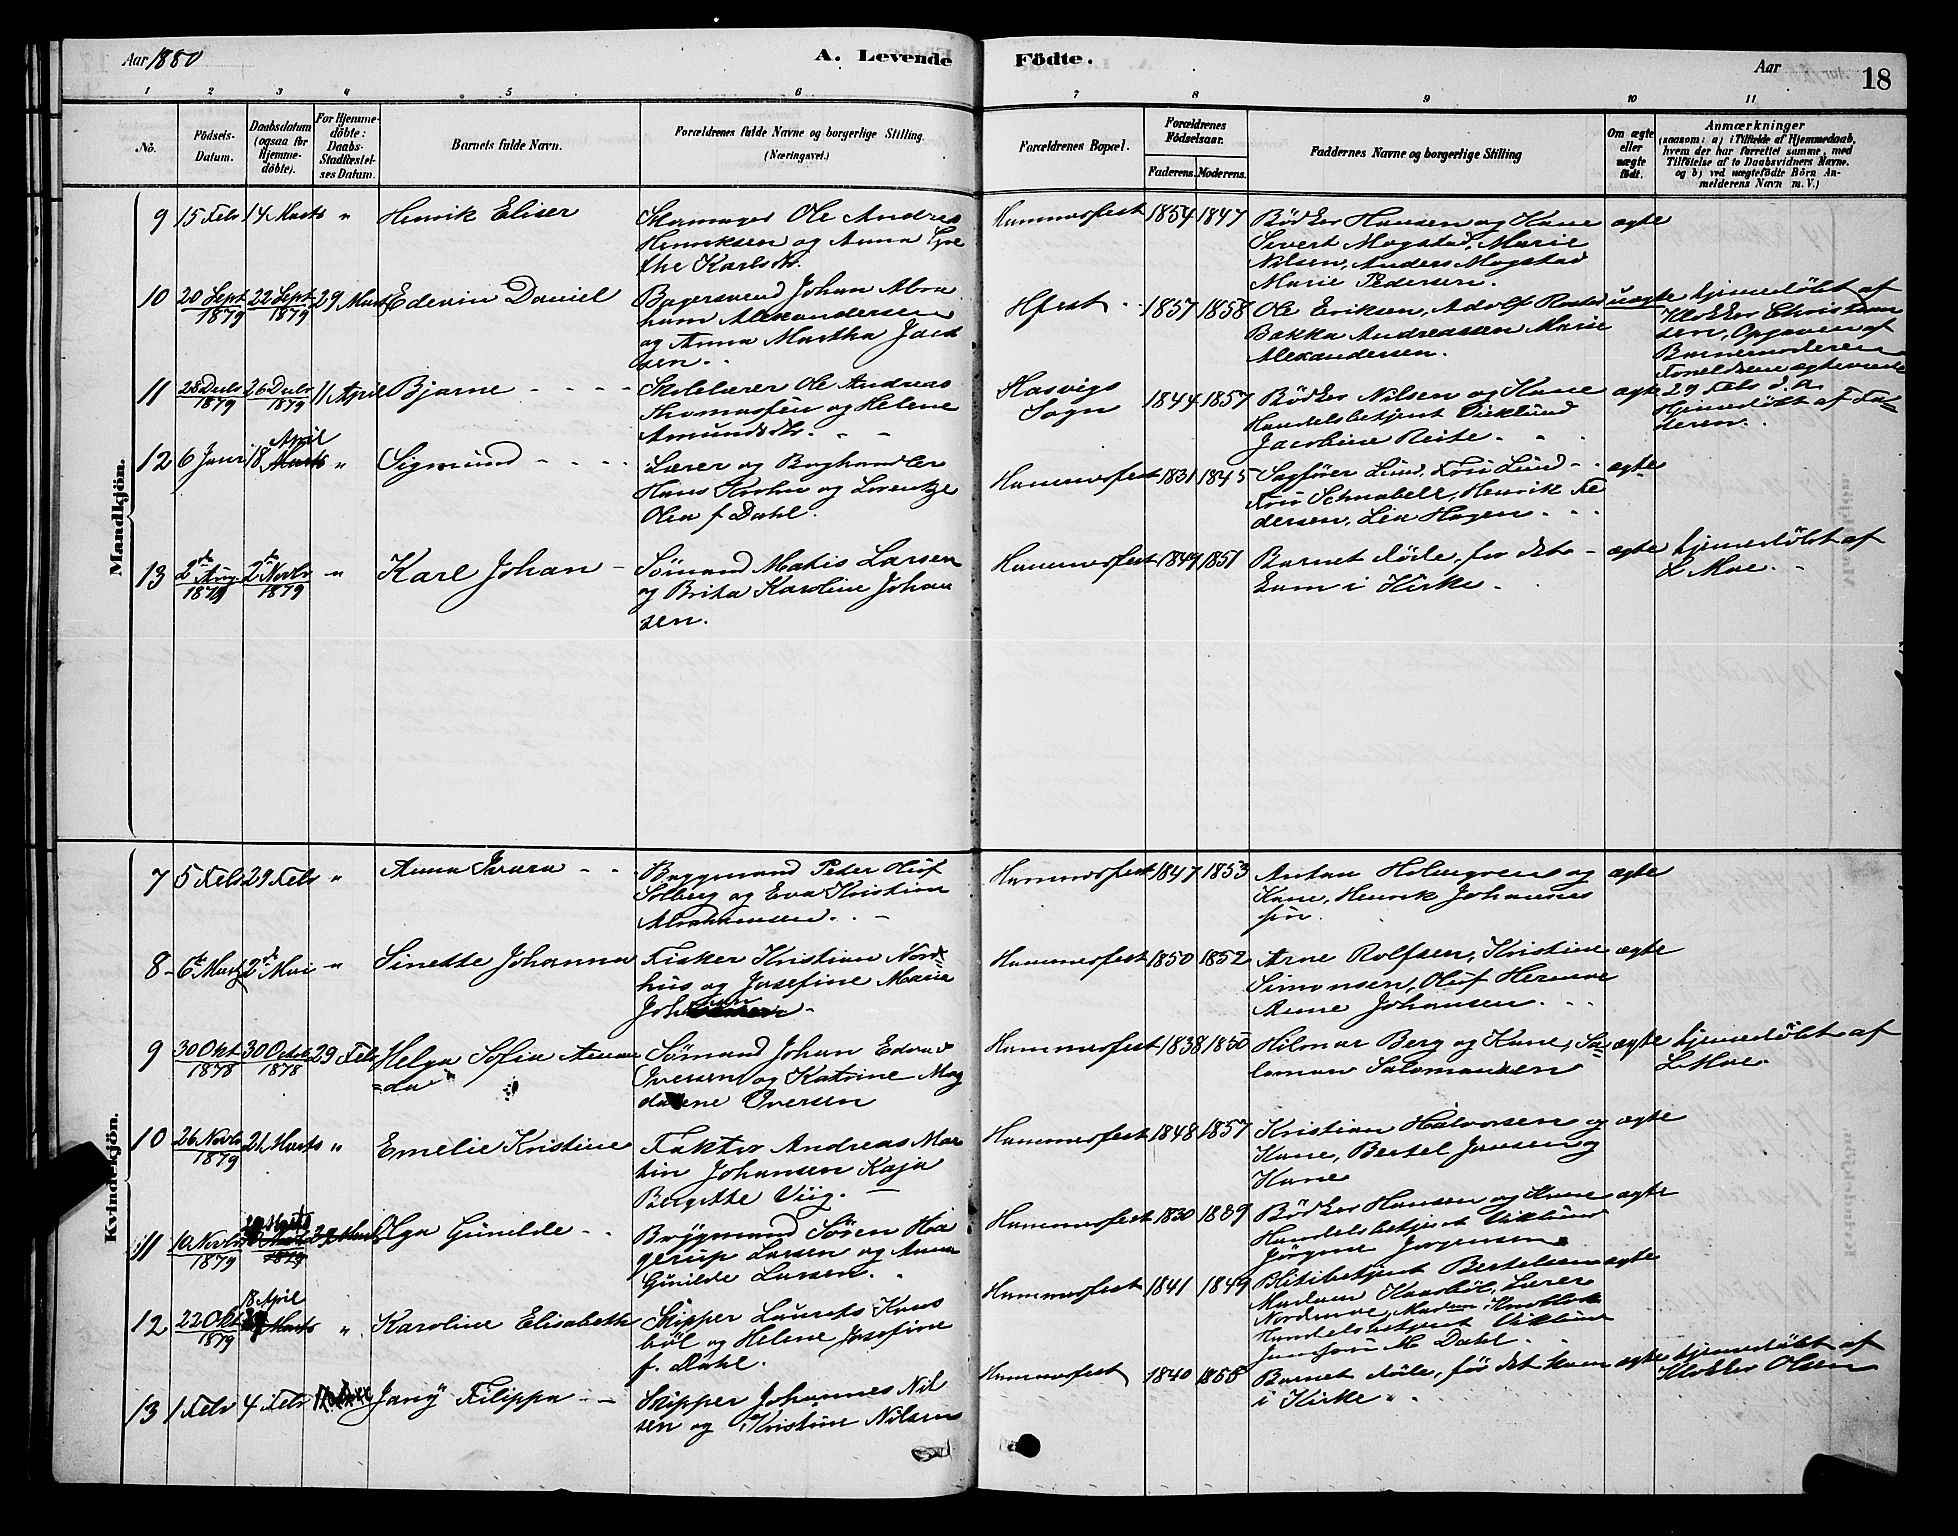 Aar 1880
A. Levende
Födte.
Aar
18
1 2 3 4 5 6 7 8 9 10 11
No.
Födsels-
Datum.
Daabsdatum
(ogsaa for
Hjemme-
döbte).
For Hjemme-
döbte:
Daabs-
Stadfæstel-
ses Datum.
Barnets fulde Navn.
Forældrenes fulde Navne og borgerlige Stilling.
(Næringsvei.)
Forældrenes Bopæl.
Forældrenes
Födselsaar.
Faderens. Moderens.
Faddernes Navne og borgerlige Stilling
Om ægte
eller
uægte
födt.
Anmærkninger
(saasom: a) i Tilfælde af Hjemmedaab,
hvem der har forrettet samme, med
Tilföielse af to Daabsvidners Navne.
og b) ved uægtefödte Börn An-
melderens Navn m. V.)
Mandkjön.
9 15 Febr 14 Marts " Henrik Eliser
Ole Andreas
Henriksen og Anna Gre
the Karlsdtr.
Hammerfest 1854 1847
Bødker Hansen og Kone
Sivert Mogstad, Marie
Nilsen, Anders Mogstad
Marie Pedersen.
ægte
10 20 Sept 1879 22 Sept 1879 29 Marts Edevin Daniel
Bagersvend Johan Abra
ham Alexandersen
og Anna Martha Jack
sen.
Hfest 1857 1858
Ole Eriksen, Adolf
Bakka Andreassen Marie
Alexandersen.
uægte
hjemedøbt af
Klokker Christian
sen, Opgaven af
Barnemoderen
Forældrene ægteviede
29 Febr d. A.
11 1879 26 Decbr 1879 11 April Bjarne
Skolelærer Ole Andreas
Thomassen og Helene
Amundsdtr.
Hasvigs
Sogn
1844 1857
Bødker Nilsen og Kone
Handelsbetjent Viklund
Jacobine Reite.
ægte
Hjemedøbt af Fa-
deren.
12 6 Januar 18 April Marts " Sigmund
Lærer og Boghandler
Hans Krohn og Lorentze
Olea f Dahl.
Hammerfest 1831 1845
Sagfører Lund, Fru Lund
Fru Schnabell, Henrik Pe
dersen, Lea Hagen.
ægte
13 2de Aug 1879 2de Novbr 1879 " Karl Johan
Sømand Matis Larsen
og Brita Karoline Johan
sen.
Hammerfest 1849 1851
Barnet døde, før det
kom i Kirke.
ægte
hjemedøbt af
L Moe.
Kvindekjön.
7 5 Febr 29 Febr " Anna
Byggmand Peter Oluf
Solberg og Eva Kristian
Abrahamsen.
Hammerfest 1847 1853
Anton Holmgren og
Kone, Henrik Johannes
sen.
ægte
8 6te Marts 2de Mai " Sinette Johanna
Fisker Kristian Nord
hus og Josefine Maria
Hammerfest 1850 1852
Arne Rolfsen, Kristine
Simonsen, Oluf Herman
Anne Johansen.
ægte
9 30 Okt 1878 30 Octbr 1878 29 Febr Helga Sofia Aman
=da
Sømand Johan Edvard
Iversen og Katrine Mag
dalene Iversen
Hammerfest 1838 1850
Hilmar Berg og Kone, Sa-
lomon Salomonsen
ægte
hjemedøbt af
L. Moe.
10 26 Novbr 1879 21 Marts " Emelie Kristine
Faktor Andreas Mar
tin Johansen Kaja
Bergitte Viig.
Hammerfest 1848 1857
Kristian Halvorsen og
Kone, Bertel Jensen og
Kone
ægte
11 10 Novbr 1879 Marts 1879 Olga Gunilde
Brygmand Søren Ha
gerup Larsen og Anna
Gunilde Larsen.
Hammerfest 1830 1839
Bødker Hansen og Kone
Handelsbetjent Viklund
Jørgine Jørgensen
ægte
12 22 Okt 1879 18 April Marts " Karoline Elisabeth
Skipper Laurets Kaas
bøl og Helene Josefine
f. Dahl.
Hammerfest 1841 1849
Bertelsen
Madam Kaasbøl, Lærer
Handelsbetjent Viklund
M Dahl.
ægte
13 1 Febr 4 Febr Jany Filippa
Skipper Johannes Nil
sen og Kristine Nilsen
Hammerfest 1840 1858
Barnet døde, før det kom
i Kirke.
ægte
hjemedøbt af
Klokker Olsen